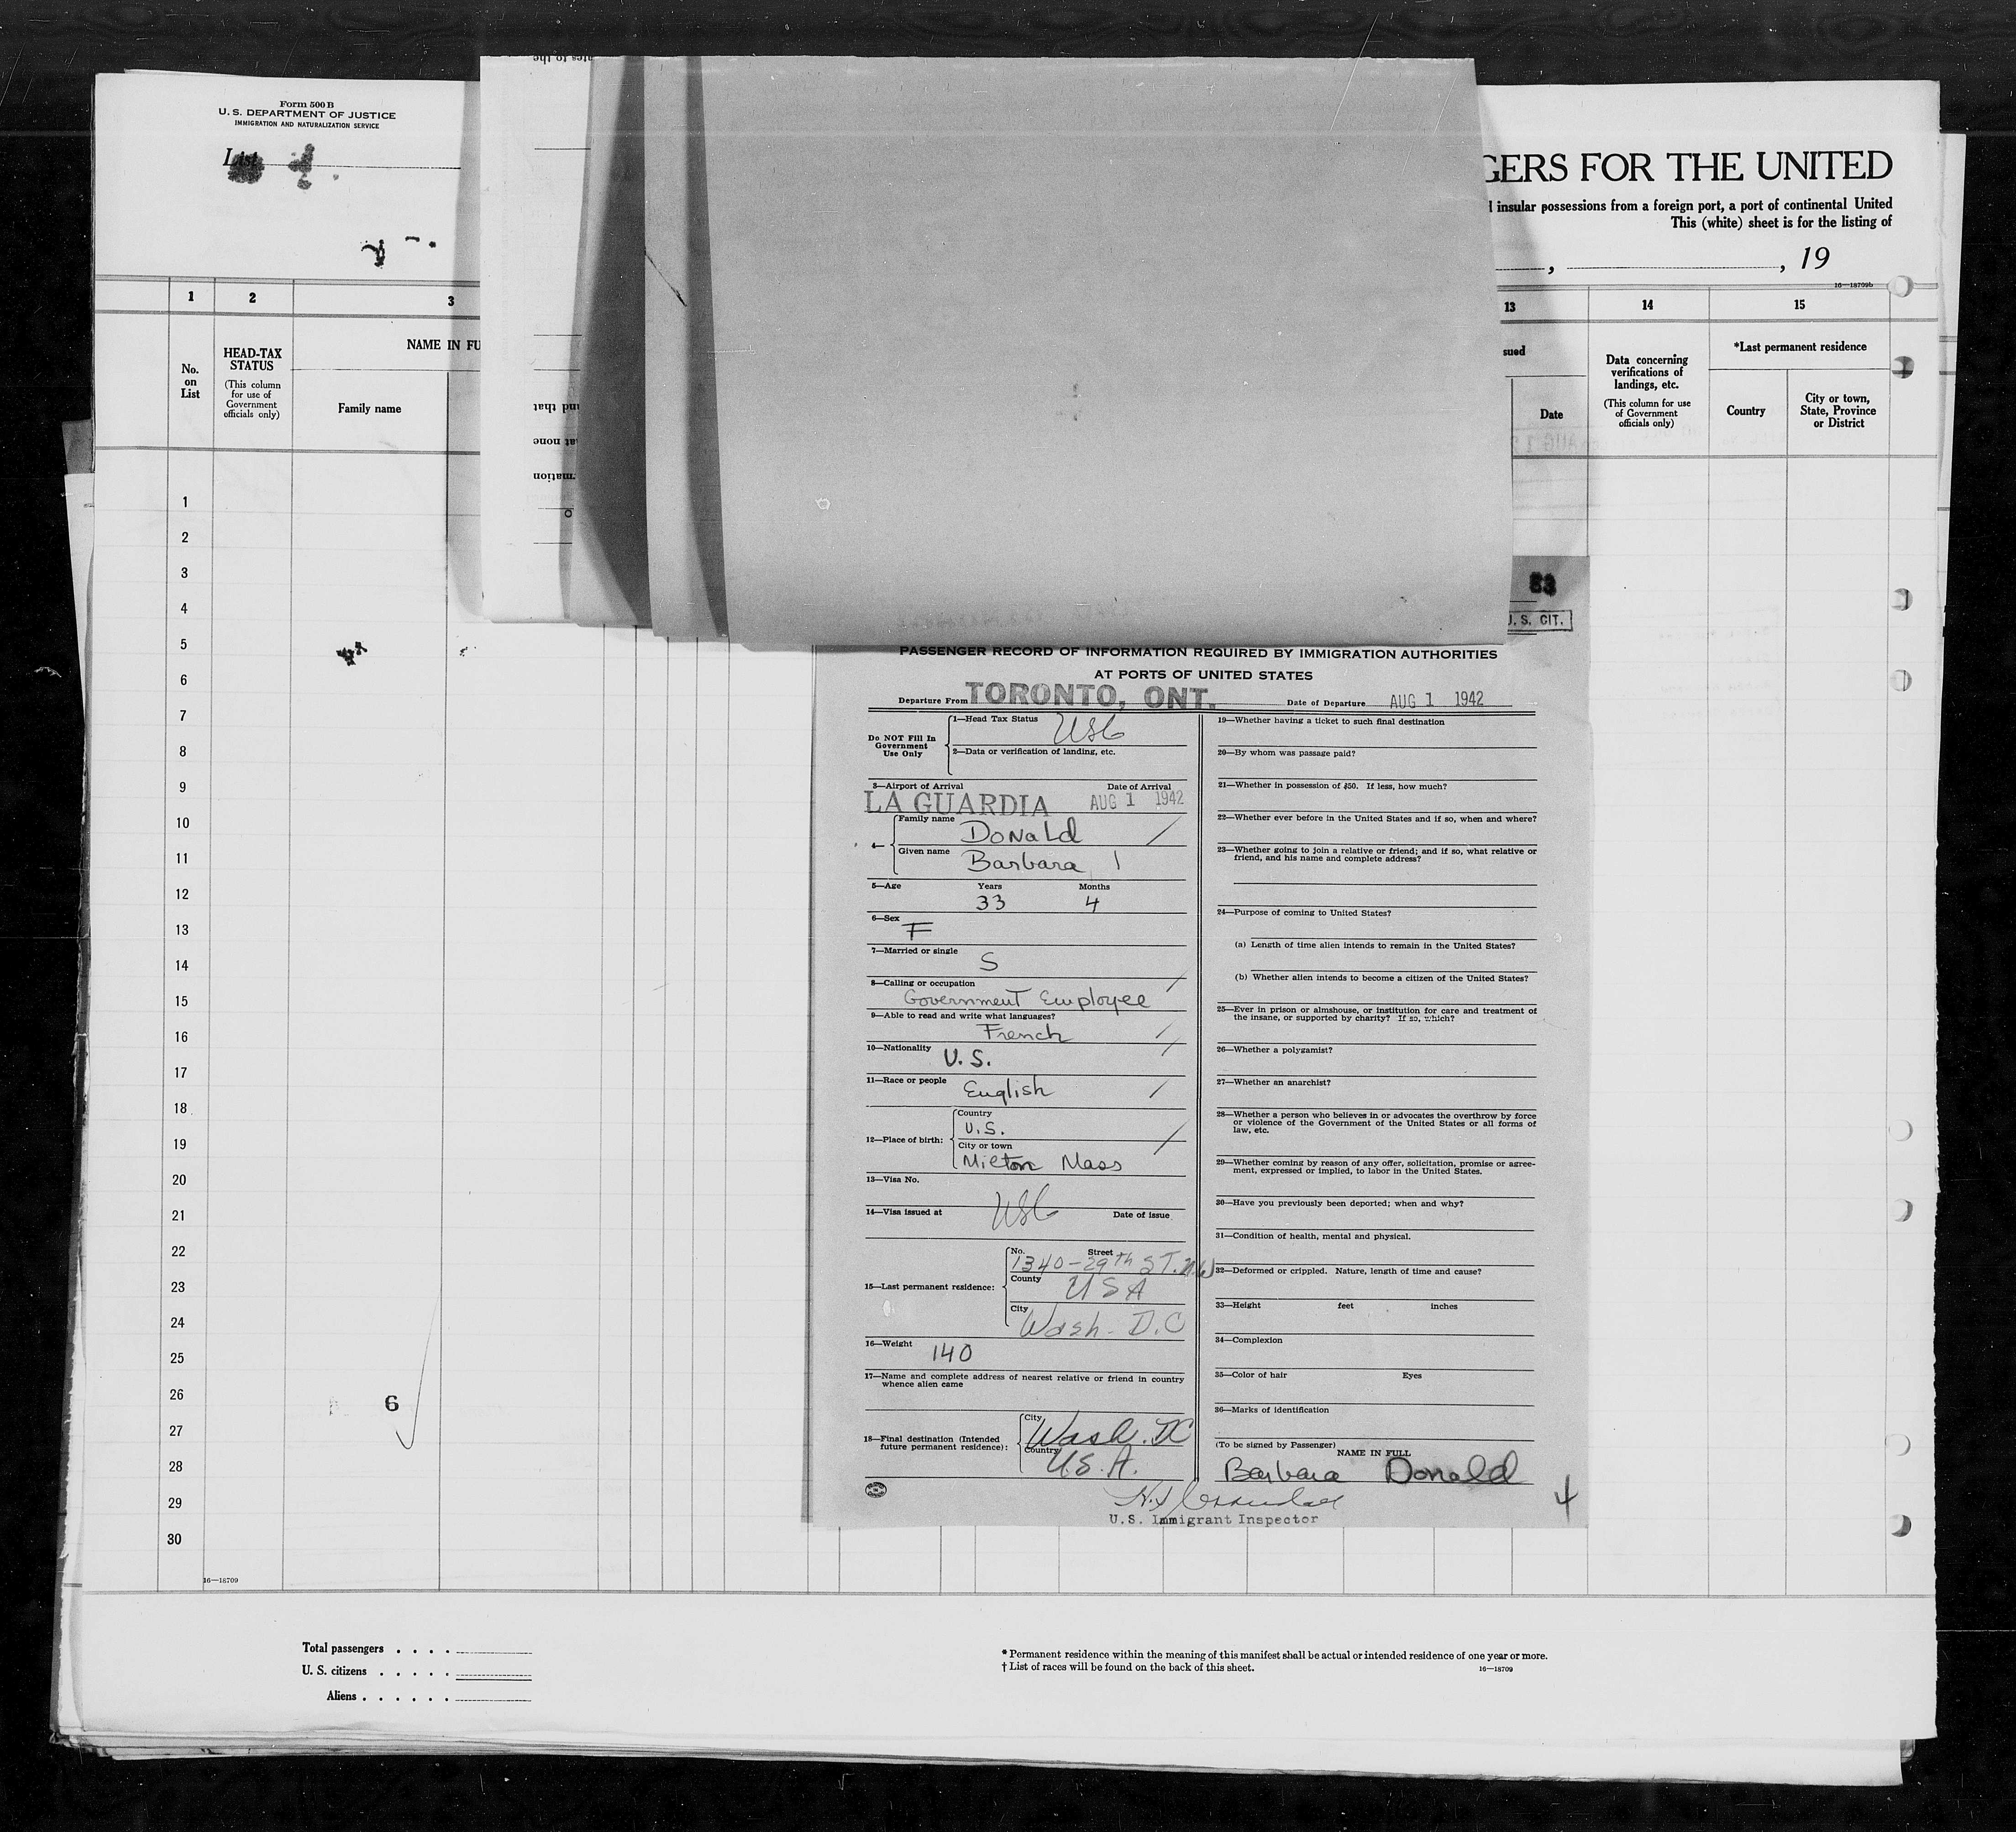 Form 500 B
U. S. DEPARTMENT OF JUSTICE
IMMIGRATION AND NATURALIZATION SERVICE
List
GERS FOR THE UNITED
insular possessions from a foreign port, a port of continental United
This (white) sheet is for the listing of
, , 19
16—18709b
1 2 3 13 14 15
No. on List
HEAD-TAX STATUS
(This column for use of Government officials only)
NAME IN FU
Family name
sued
Date
Data concerning verifications of landings, etc.
(This column for use of Government officials only)
*Last permanent residence
Country
City or town, State, Province or District
ntes to the
und that
at none
rmation
1
2
3
4
5
6
7
8
9
10
11
12
13
14
15
16
17
18
19
20
21
22
23
24
25
26
27
28
29
30
6
16—18709
83
U. S. CIT.
PASSENGER RECORD OF INFORMATION REQUIRED BY IMMIGRATION AUTHORITIES
AT PORTS OF UNITED STATES
Departure From TORONTO, ONT. Date of Departure AUG 1 1942
Do NOT Fill In Government Use Only
1—Head Tax Status USC
2—Data or verification of landing, etc.
3—Airport of Arrival Date of Arrival
LA GUARDIA AUG 1 1942
4—Family name Donald
Given name Barbara
5—Age Years Months
33 4
6—Sex
F
7—Married or single
S
8—Calling or occupation
Government Employee
9—Able to read and write what languages?
French
10—Nationality U. S.
11—Race or people English
12—Place of birth:
Country
U.S.
City or town
Milton Mass
13—Visa No.
14—Visa issued at USC Date of issue
15—Last permanent residence:
No. Street
1340-29th ST. N.W
County USA
City Wash. D.C
16—Weight 140
17—Name and complete address of nearest relative or friend in country
whence alien came
18—Final destination (Intended
future permanent residence):
City Wash. DC
Country U.S.A.
19—Whether having a ticket to such final destination
20—By whom was passage paid?
21—Whether in possession of $50. If less, how much?
22—Whether ever before in the United States and if so, when and where?
23—Whether going to join a relative or friend; and if so, what relative or
friend, and his name and complete address?
24—Purpose of coming to United States?
(a) Length of time alien intends to remain in the United States?
(b) Whether alien intends to become a citizen of the United States?
25—Ever in prison or almshouse, or institution for care and treatment of
the insane, or supported by charity? If so, which?
26—Whether a polygamist?
27—Whether an anarchist?
28—Whether a person who believes in or advocates the overthrow by force
or violence of the Government of the United States or all forms of
law, etc.
29—Whether coming by reason of any offer, solicitation, promise or agree-
ment, expressed or implied, to labor in the United States.
30—Have you previously been deported; when and why?
31—Condition of health, mental and physical.
32—Deformed or crippled. Nature, length of time and cause?
33—Height feet inches
34—Complexion
35—Color of hair Eyes
36—Marks of identification
(To be signed by Passenger)
NAME IN FULL
Barbara Donald
U.S. Immigrant Inspector
4
Total passengers . . . .
U. S. citizens . . . . .
Aliens . . . . . .
* Permanent residence within the meaning of this manifest shall be actual or intended residence of one year or more.
† List of races will be found on the back of this sheet.
16—18709